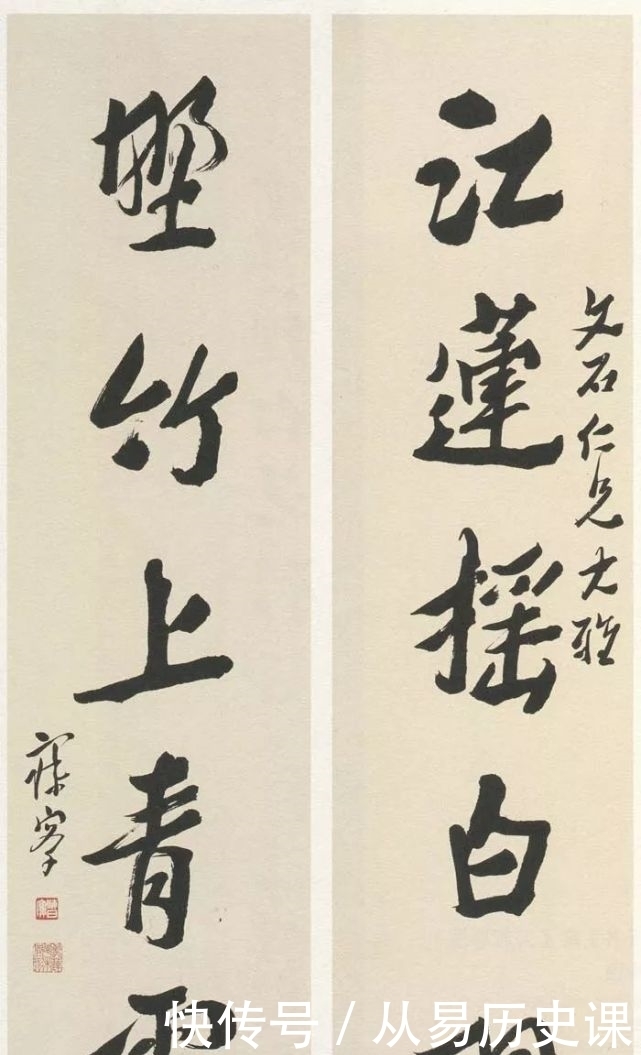 文石仁兄大雅
江蓮摇白
野竹上青
寐叟
快传号/从易历史课